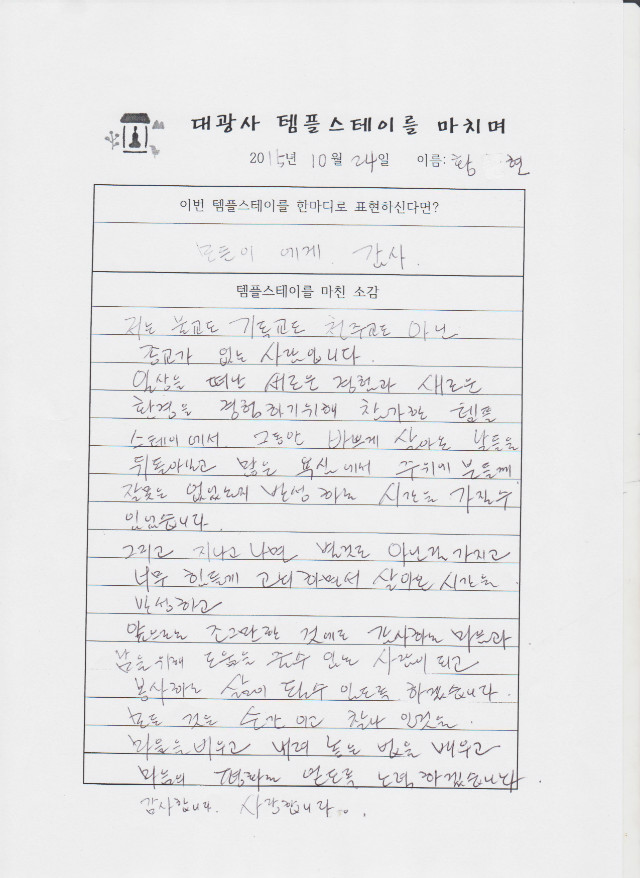 대광사 템플스테이를 마치며
2015년 10월 24일 이름: 황 현
이번 템플스테이를 한마디로 표현하신다면?
모든이 에게. 감사.
템플스테이를 마친 소감
저는 불교도 기독교도 천주교도 아닌
종교가 없는 사람입니다.
일상을 떠난 새로운 경험과 새로운
환경을 경험하기위해 참가한 템플
스테이에서 그동안 바쁘게 살아온 날들을
뒤돌아보고 많은 욕심에서 주위에 분들께
잘못은 없었는지 반성하는 시간을 가질수
있었습니다.
그리고 지나고 나면 별것도 아닌걸 가지고
너무 힘들게 고뇌하면서 살아온 시간을
반성하고
앞으로는 조그만한 것에도 감사하는 마음과
남을 위해 도움을 줄수 있는 사람이 되고
봉사하는 삶이 될수 있도록 하겠습니다.
모든 것은 순간이고 찰나 인것을.
마음을 비우고 내려 놓는 법을 배우고
마음의 평화를 얻도록 노력하겠습니다.
감사합니다. 사랑합니다.